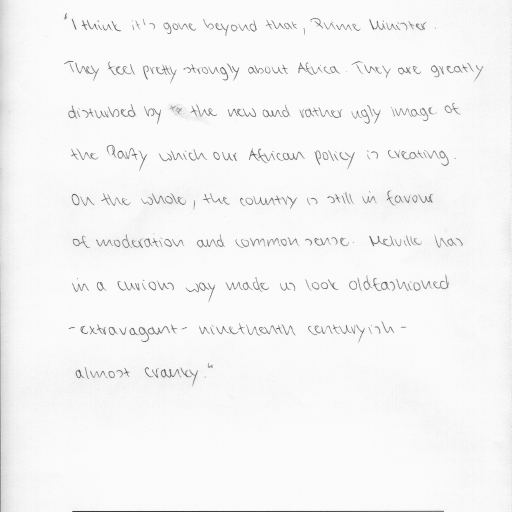 "I think it's gone beyond that, Prime Minister.
They feel pretty strongly about Africa. They are greatly
disturbed by the new and rather ugly image of
the Party which our African policy is creating.
On the whole, the country is still in favour
of moderation and common sense. Melville has
in a curious way made us look oldfashioned
-extravagant- nineteenth centuryish-
almost cranky."